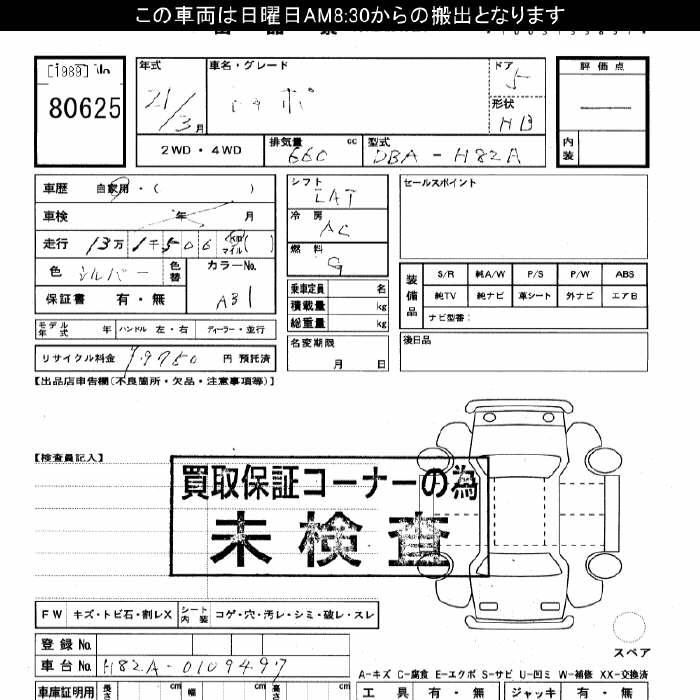 この車両は日曜日AM8:30からの搬出となります
[1989]
80625
年式
21/3月
車名・グレード
トッポ
ドア
5
形状
HB
評価点
内装
2WD・4WD
排気量
660
cc
型式
DBA-H82A
車歴 自家用・( )
車検 年 月
走行 13万1千506 km マイル( )
色 シルバー 色替
カラーNo.
A31
保証書 有・無
シフト
LAT
冷房
AC
燃料
G
乗車定員 名
積載量 kg
総重量 kg
名変期限
月 日
セールスポイント
装備品
S/R 純A/W P/S P/W ABS
純TV 純ナビ 革シート 外ナビ エアB
ナビ型番:
後日品
モデル年式 年 ハンドル 左・右 ディーラー・並行
リサイクル料金 円 預託済
【出品店申告欄(不良箇所・欠品・注意事項等)】
【検査員記入】
買取保証コーナーの為
未検査
FW キズ・トビ石・割レX シート内装 コゲ・穴・汚レ・シミ・破レ・スレ
スペア
登録No.
車台No. H82A-0109497
A-キズ C-腐食 E-エクボ S-サビ U-凹ミ W-補修 XX-交換済
車庫証明用 長さ cm 幅 cm 高さ cm
工具 有・無 ジャッキ 有・無